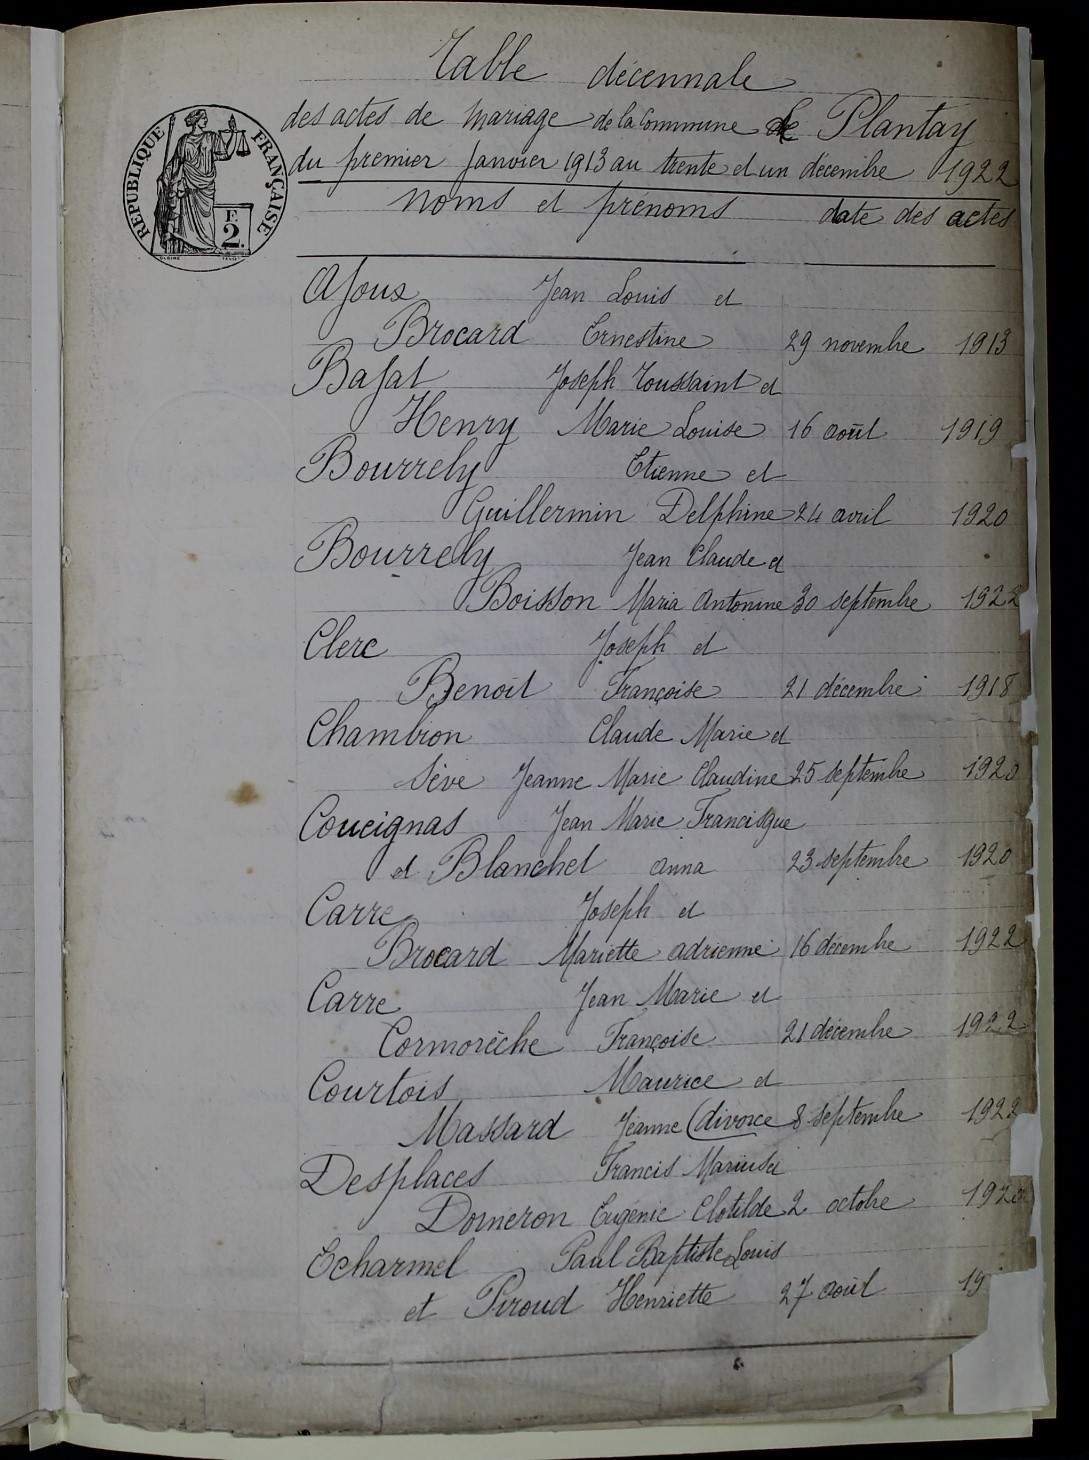 Table décennale
des actes de mariage de la Commune de Plantay
du premier Janvier 1913 au trente et un décembre 1922
noms et prénoms date des actes
RÉPUBLIQUE FRANÇAISE
F.
2.
Ajoux Jean Louis et
Brocard Ernestine 29 novembre 1913
Bajat Joseph Toussaint et
Henry Marie Louise 16 août 1919
Bourrely Etienne et
Guillermin Delphine 24 avril 1920
Bourrely Jean Claude et
Boisson Maria Antonine 30 septembre 1922
Clerc Joseph et
Benoît Françoise 21 décembre 1918
Chambion Claude Marie et
Sève Jeanne Marie Claudine 25 septembre 1920
Coucignas Jean Marie Francisque
et Blanchet anna 23 septembre 1920
Carre Joseph et
Brocard Mariette adrienne 16 décembre 1922
Carre Jean Marie et
Cormorèche Françoise 21 décembre 1922
Courtois Maurice et
Massard Jeanne (divorce 8 septembre 1922
Desplaces Francis Marius et
Domeron Eugénie Clotilde 2 octobre 1920
Echarmel Paul Baptiste Louis
et Piroud Henriette 27 août 19